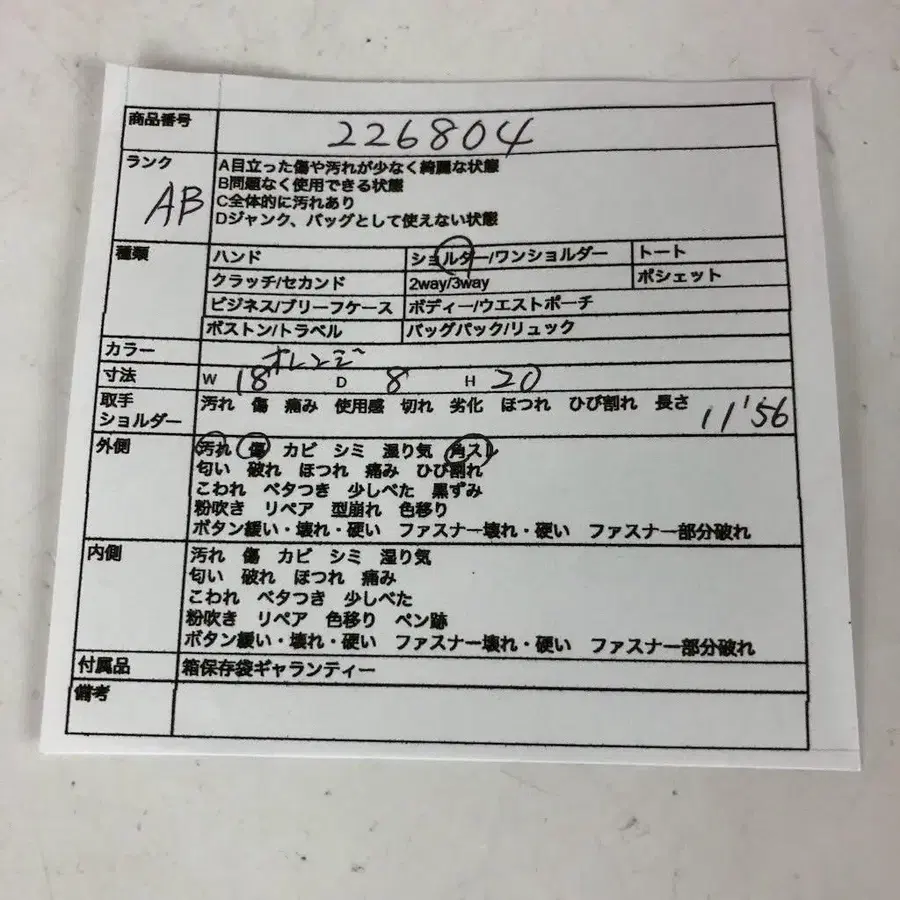 商品番号 226804
ランク AB
A目立った傷や汚れが少なく綺麗な状態
B問題なく使用できる状態
C全体的に汚れあり
Dジャンク、バッグとして使えない状態
種類 ハンド ショルダー/ワンショルダー トート
クラッチ/セカンド 2way/3way ポシェット
ビジネス/ブリーフケース ボディー/ウエストポーチ
ボストン/トラベル バッグパック/リュック
カラー オレンジ
寸法 W 18 D 8 H 20
取手 汚れ 傷 痛み 使用感 切れ 劣化 ほつれ ひび割れ 長さ 11'56
ショルダー
外側 汚れ 傷 カビ シミ 湿り気 角スレ
匂い 破れ ほつれ 痛み ひび割れ
こわれ ベタつき 少しべた 黒ずみ
粉吹き リペア 型崩れ 色移り
ボタン緩い・壊れ・硬い ファスナー壊れ・硬い ファスナー部分破れ
内側 汚れ 傷 カビ シミ 湿り気
匂い 破れ ほつれ 痛み
こわれ ベタつき 少しべた
粉吹き リペア 色移り ペン跡
ボタン緩い・壊れ・硬い ファスナー壊れ・硬い ファスナー部分破れ
付属品 箱保存袋ギャランティー
備考